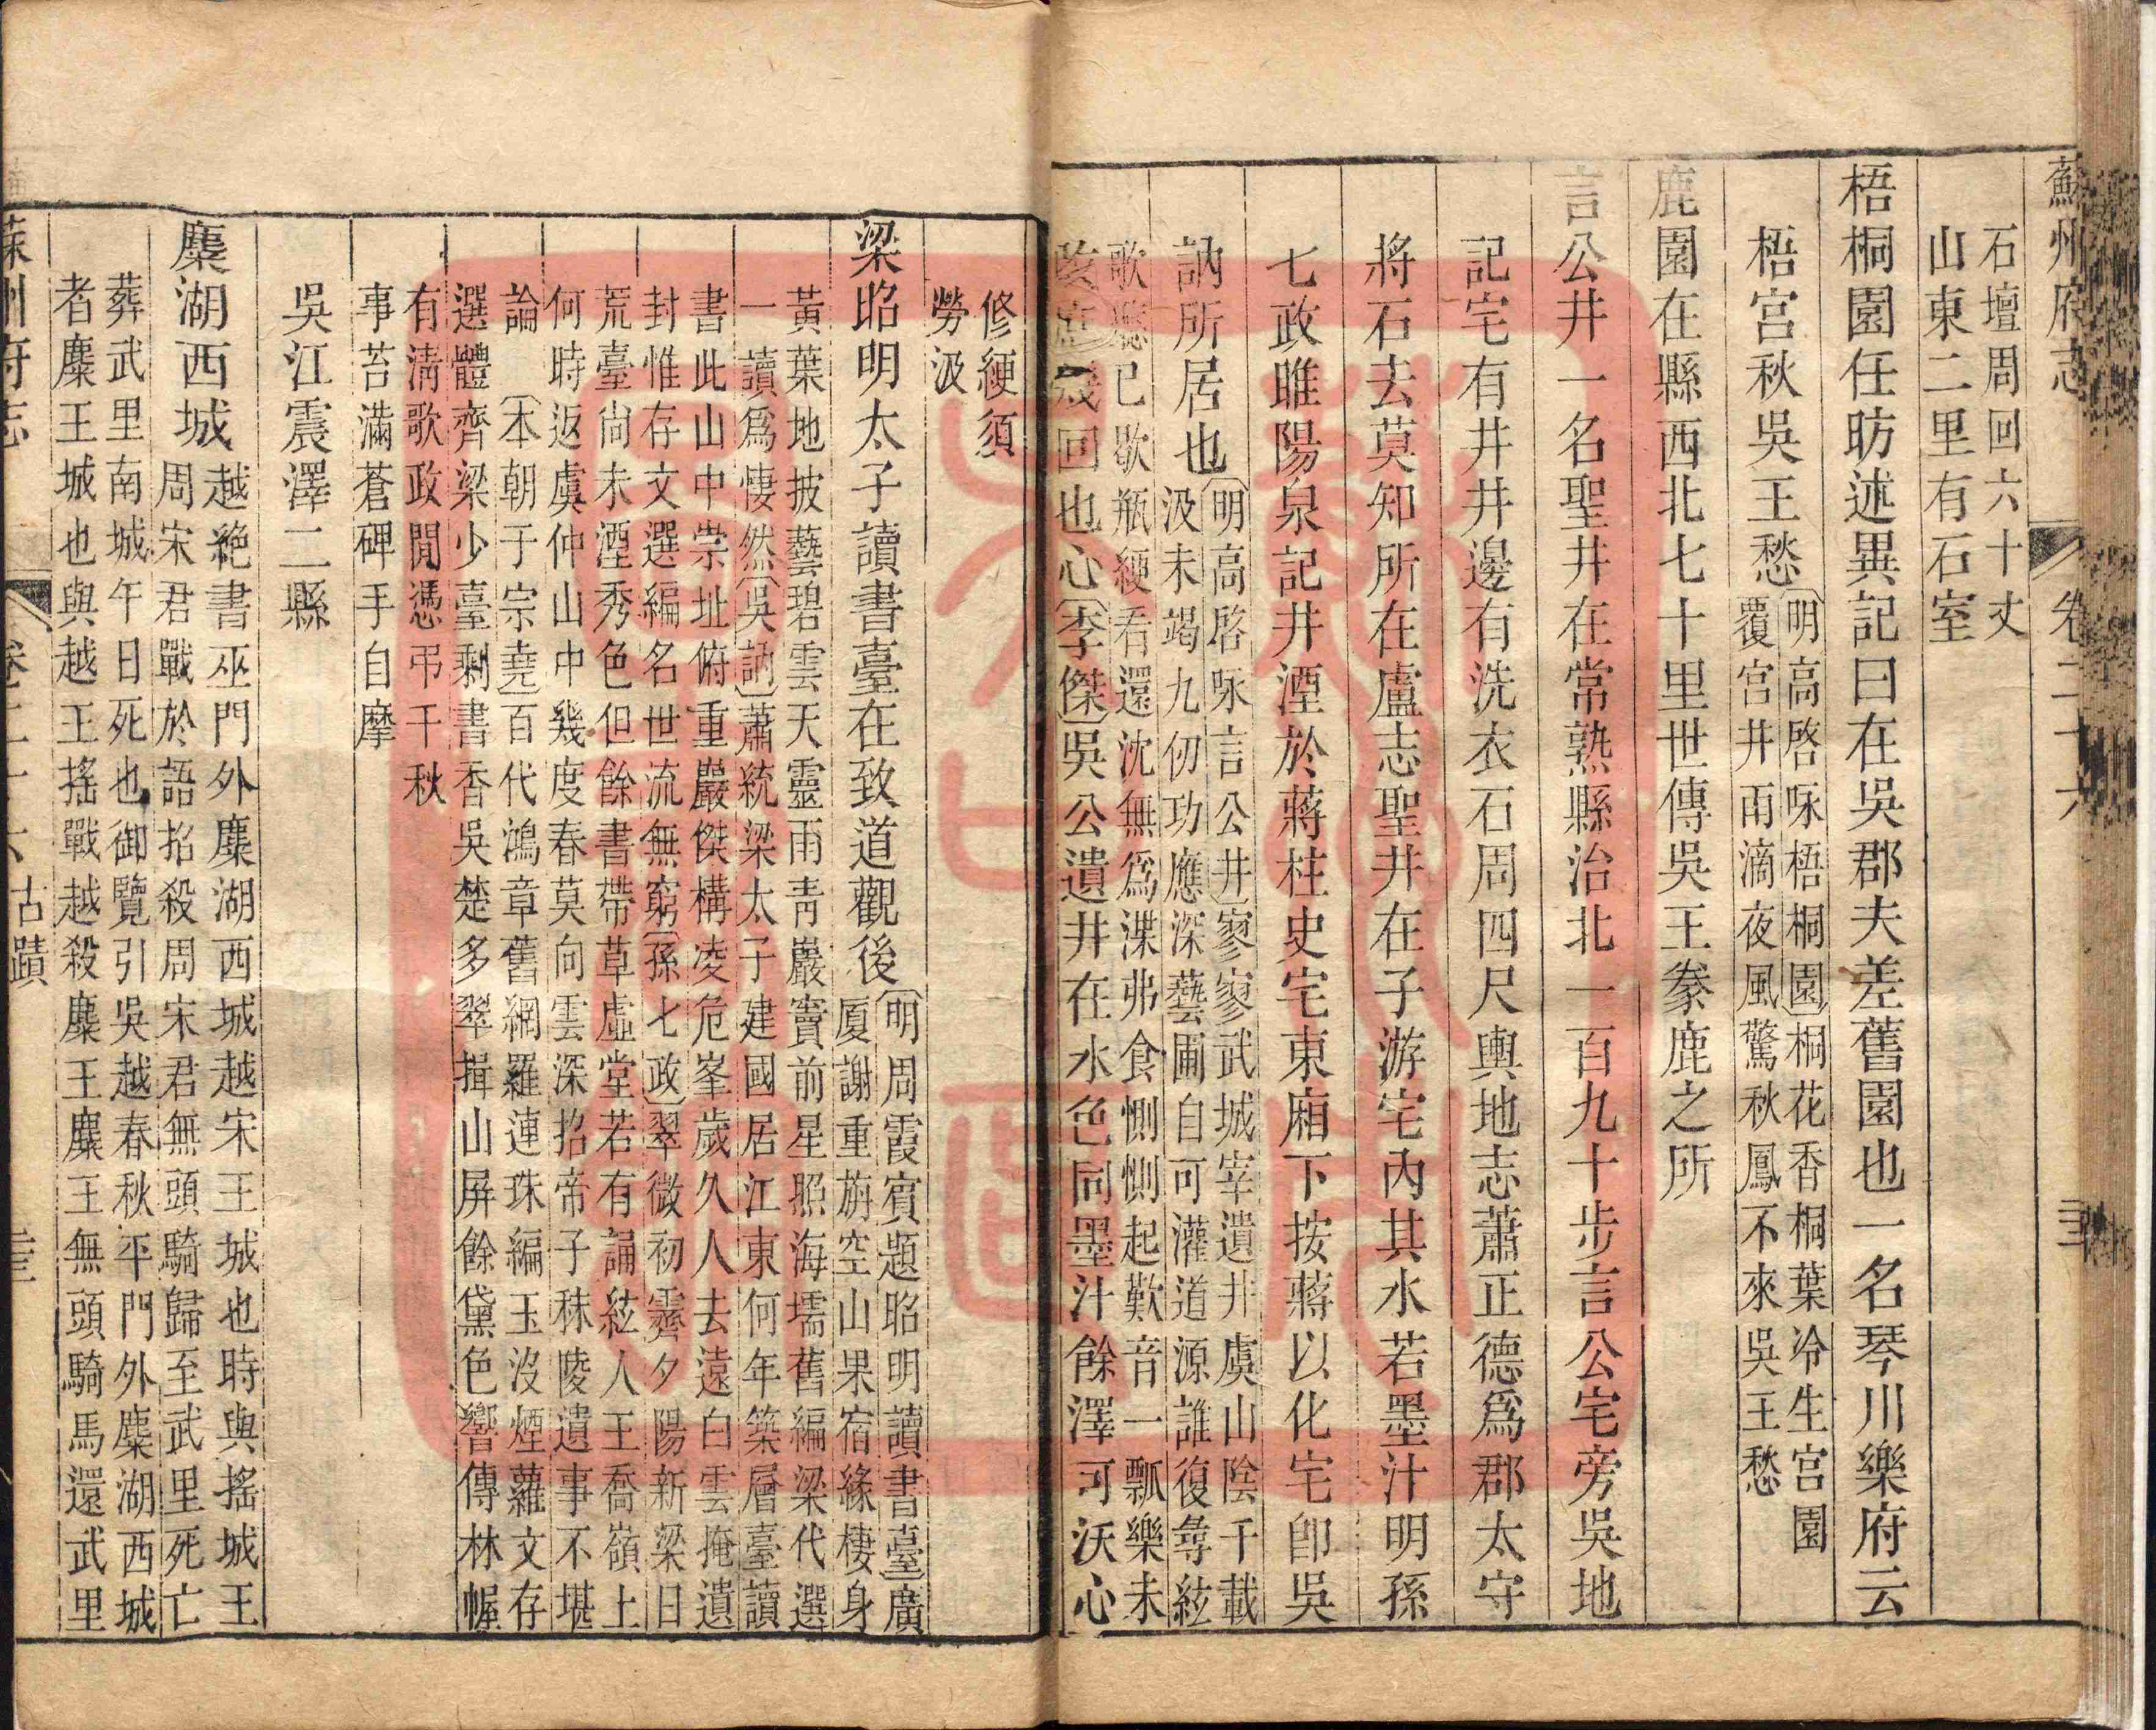 蘇州府志 卷二十六
石壇周回六十丈
山東二里有石室
梧桐園任昉述異記曰在吳郡夫差舊園也一名琴川樂府云
梧宮秋吳王愁
〔明高啓咏梧桐園〕桐花香桐葉冷生宮園
覆宮井雨滴夜風驚秋鳳不來吳王愁
鹿園在縣西北七十里世傳吳王豢鹿之所
言公井一名聖井在常熟縣治北一百九十步言公宅旁吳地
記宅有井井邊有洗衣石周四尺輿地志蕭正德爲郡太守
將石去莫知所在盧志聖井在子游宅內其水若墨汁明孫
七政雎陽泉記井湮於蔣柱史宅東廂下按蔣以化宅卽吳
訥所居也
〔明高啓咏言公井〕寥寥武城宰遺井虞山陰千載
汲未竭九仞功應深藝圃自可灌道源誰復尋絃
歌聽已歇瓶綆看還沈無爲渫弗食惻惻起歎音一瓢樂未
回也心〔李傑〕吳公遺井在水色同墨汁餘澤可沃心
修綆須
勞汲
梁昭明太子讀書臺在致道觀後
〔明周霞賓題昭明讀書臺〕廣
厦謝重旃空山果宿緣棲身
黃葉地披藝碧雲天靈雨青巖竇前星照海壖舊編梁代選
一讀爲悽然〔吳訥〕蕭統梁太子建國居江東何年築層臺讀
書此山中崇址俯重巖傑構凌危峯歲久人去遠白雲掩遺
封惟存文選編名世流無窮〔孫七政〕翠微初霽夕陽新梁日
荒臺尚未湮秀色但餘書帶草虛堂若有誦絃人王喬嶺上
何時返虞仲山中幾度春莫向雲深招帝子秣陵遺事不堪
論〔本朝于宗堯〕百代鴻章舊網羅連珠編玉沒煙蘿文存
選體齊梁少臺剩書香吳楚多翠揖山屏餘黛色響傳林幄
有清歌政閒憑弔千秋
事苔滿蒼碑手自摩
吳江震澤二縣
麋湖西城
越絶書巫門外麋湖西城越宋王城也時與搖城王
周宋君戰於語招殺周宋君無頭騎歸至武里死亡
葬武里南城午日死也御覽引吳越春秋平門外麋湖西城
者麋王城也與越王搖戰越殺麋王麋王無頭騎馬還武里
蘇州府志 卷二十六 古蹟